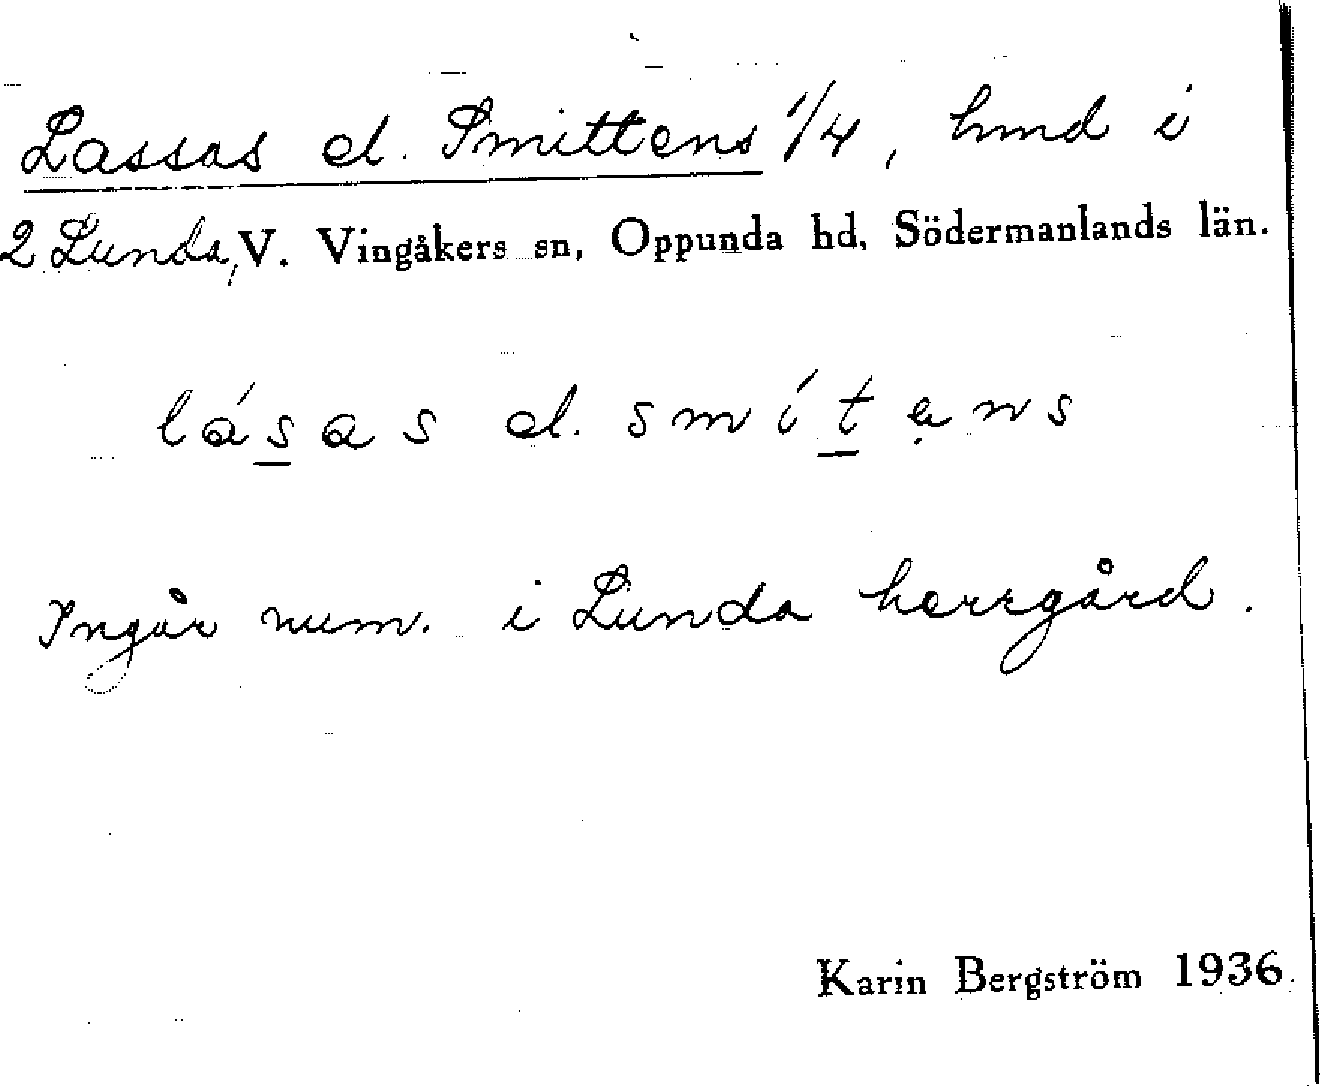 Lassas el. Smittens 1/4, hmd i
2 Lunda, V. Vingåkers sn, Oppunda hd, Södermanlands län.
lásas el. smítạns
Ingår num. i Lunda herrgård.
Karin Bergström 1936.